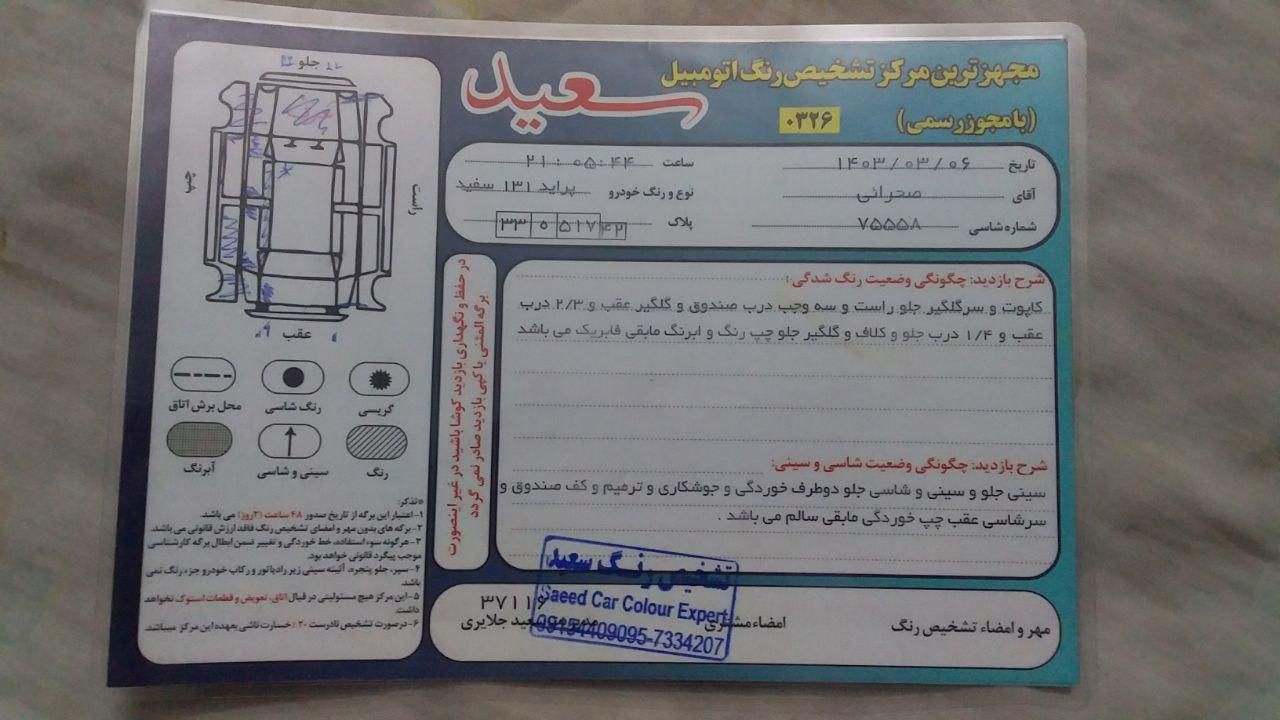 مجهزترین مرکز تشخیص رنگ اتومبیل
سعید
(با مجوز رسمی)
۰۳۲۶
تاریخ ۱۴۰۳/۰۳/۰۶
ساعت ۲۱:۰۵:۴۴
آقای صحرائی
نوع و رنگ خودرو پراید ۱۳۱ سفید
شماره شاسی ۷۵۵۵۸
پلاک
شرح بازدید: چگونگی وضعیت رنگ شدگی:
کاپوت و سرگلگیر جلو راست و سه وجب درب صندوق و گلگیر عقب و ۲/۳ درب
عقب و ۱/۴ درب جلو و کلاف و گلگیر جلو چپ رنگ و ابرنگ مابقی فابریک می باشد
شرح بازدید: چگونگی وضعیت شاسی و سینی:
سینی جلو و سینی و شاسی جلو دوطرف خوردگی و جوشکاری و ترمیم و کف صندوق و
سرشاسی عقب چپ خوردگی مابقی سالم می باشد .
در حفظ و نگهداری بازدید کوشا باشید در غیر اینصورت
برگه المثنی یا کپی بازدید صادر نمی گردد
مهر و امضاء تشخیص رنگ
امضاء مشتری
۳۷۱۱۶
مدیریت سعید جلایری
تشخیص رنگ سعید
Saeed Car Colour Expert
09154409095-7334207
جلو
راست
چپ
عقب
گریسی
رنگ شاسی
محل برش اتاق
رنگ
سینی و شاسی
آبرنگ
*تذکر:
۱-اعتبار این برگه از تاریخ صدور ۴۸ ساعت (۲روز) می باشد.
۲-برگه های بدون مهر و امضای تشخیص رنگ فاقد ارزش قانونی می باشد.
۳-هرگونه سوء استفاده، خط خوردگی و تغییر ضمن ابطال برگه کارشناسی
موجب پیگرد قانونی خواهد بود.
۴-سپر، جلو پنجره، آئینه سینی زیر رادیاتور و رکاب خودرو جزء رنگ نمی
باشد.
۵-این مرکز هیچ مسئولیتی در قبال اتاق، تعویض و قطعات استوک نخواهد
داشت.
۶-درصورت تشخیص نادرست ۲۰٪ خسارت ناشی بعهده این مرکز میباشد.